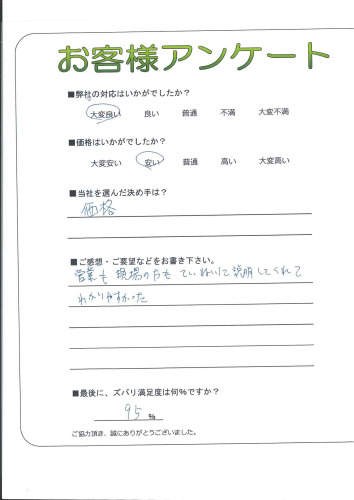 お客様アンケート
■弊社の対応はいかがでしたか？
大変良い 良い 普通 不満 大変不満
■価格はいかがでしたか？
大変安い 安い 普通 高い 大変高い
■当社を選んだ決め手は？
価格
■ご感想・ご要望などをお書き下さい。
営業も現場の方もていねいに説明してくれて
わかりやすかった
■最後に、ズバリ満足度は何％ですか？
95 %
ご協力頂き、誠にありがとうございました。